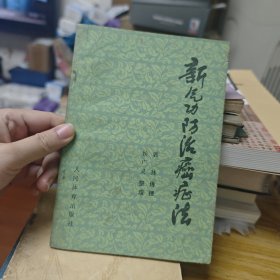 新气功防治癌症法
郭林 传授
整理
人民体育出版社